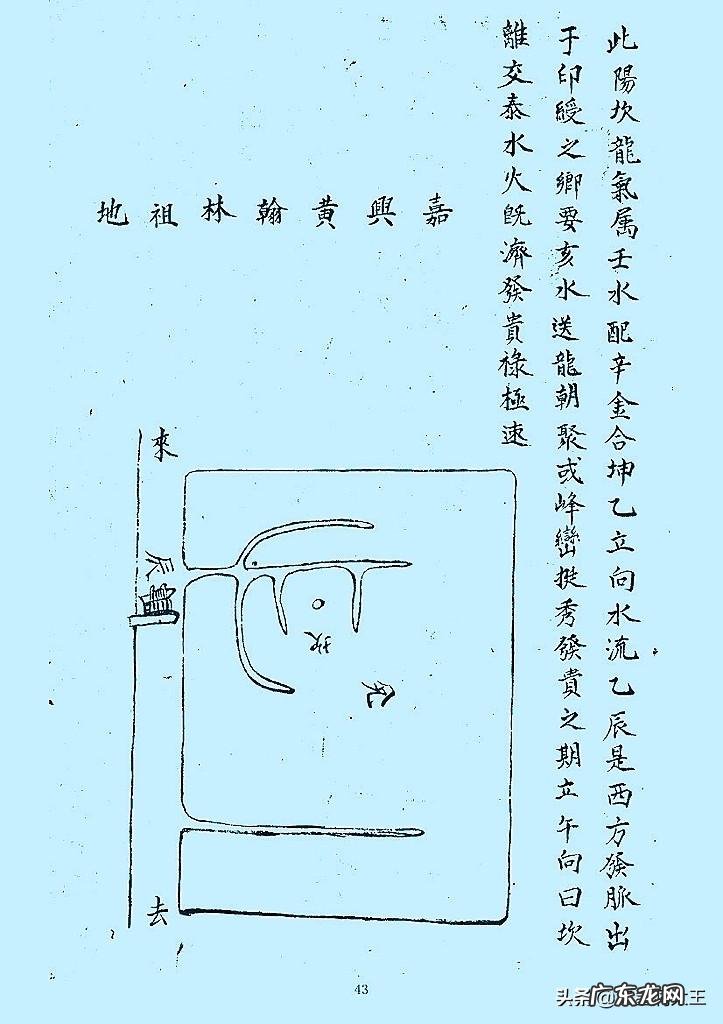 此陽坎龍氣属壬水配辛金合坤乙立向水流乙辰是西方發脈出
于印綬之鄉要亥水送龍朝聚或峰巒挺秀發貴之期立午向曰坎
離交泰水火既濟發貴祿極速
嘉興黄翰林祖地
來
辰
坎
去
43
头条@
广东龙网
王